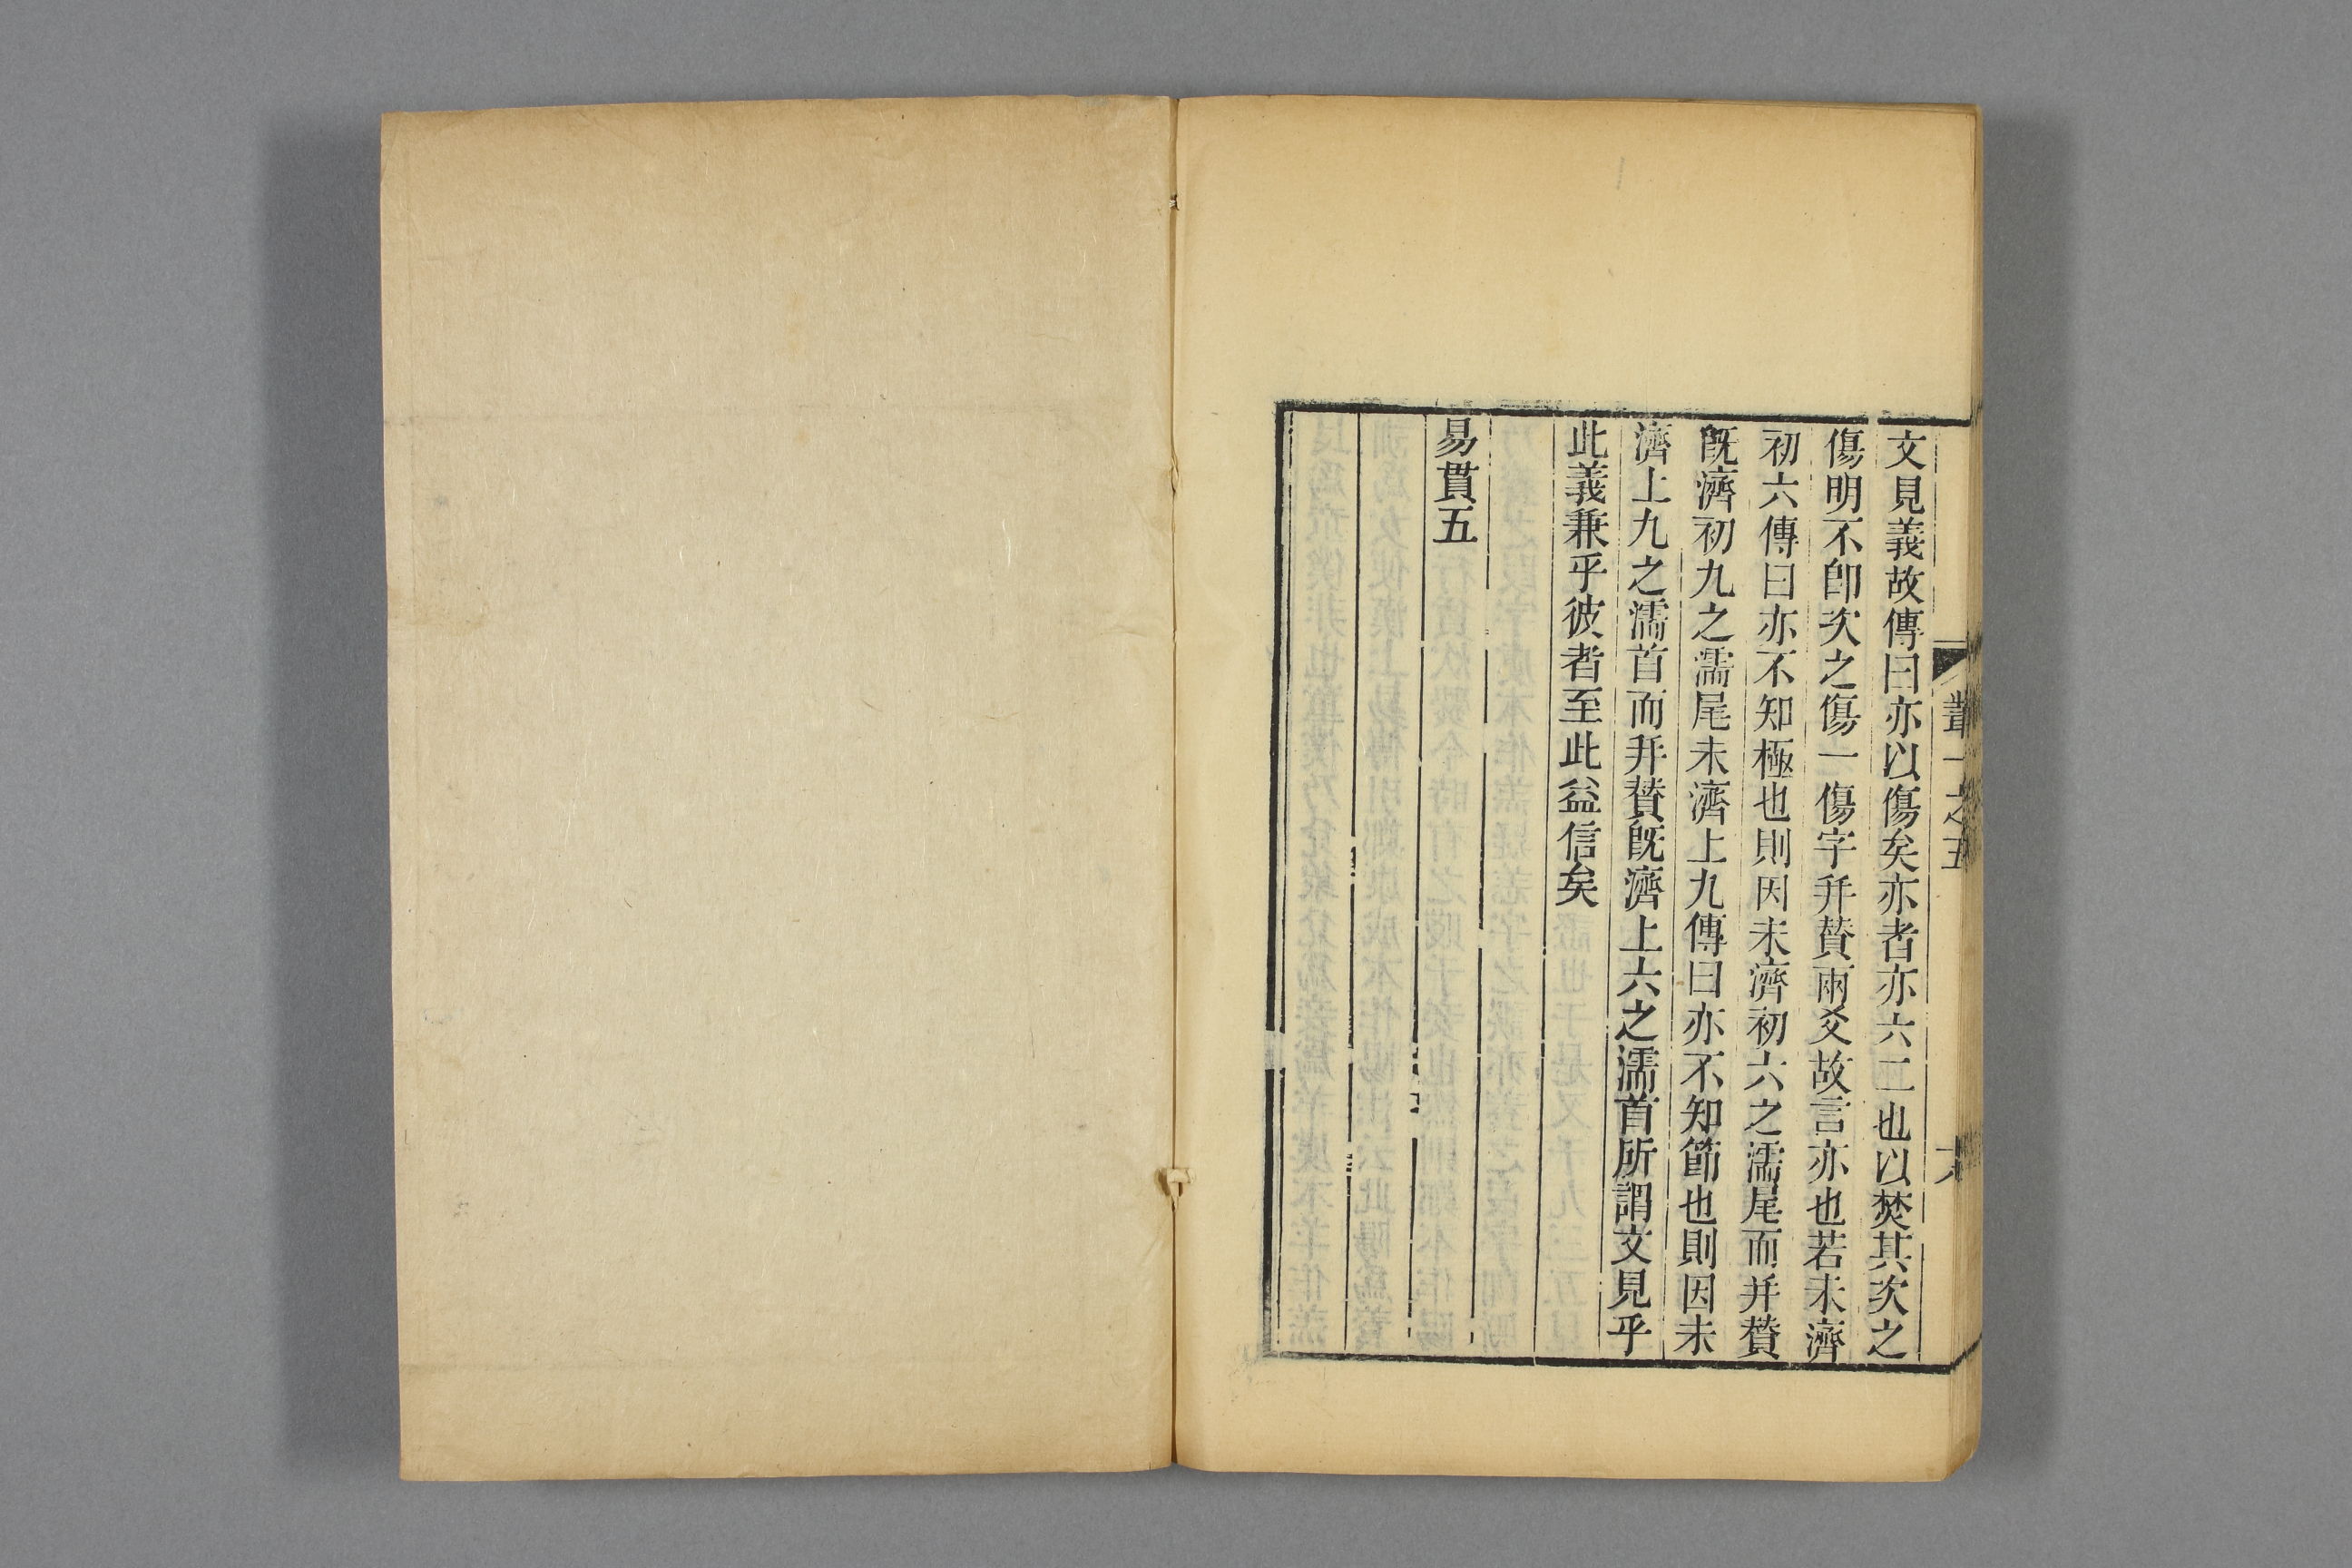 文見義故傳曰亦以傷矣亦者亦六二也以焚其次之
傷明不卽次之傷一傷字幷賛兩爻故言亦也若未濟
初六傳曰亦不知極也則因未濟初六之濡尾而幷賛
旣濟初九之濡尾未濟上九傳曰亦不知節也則因未
濟上九之濡首而幷賛旣濟上六之濡首所謂文見乎
此義兼乎彼者至此益信矣
易貫五